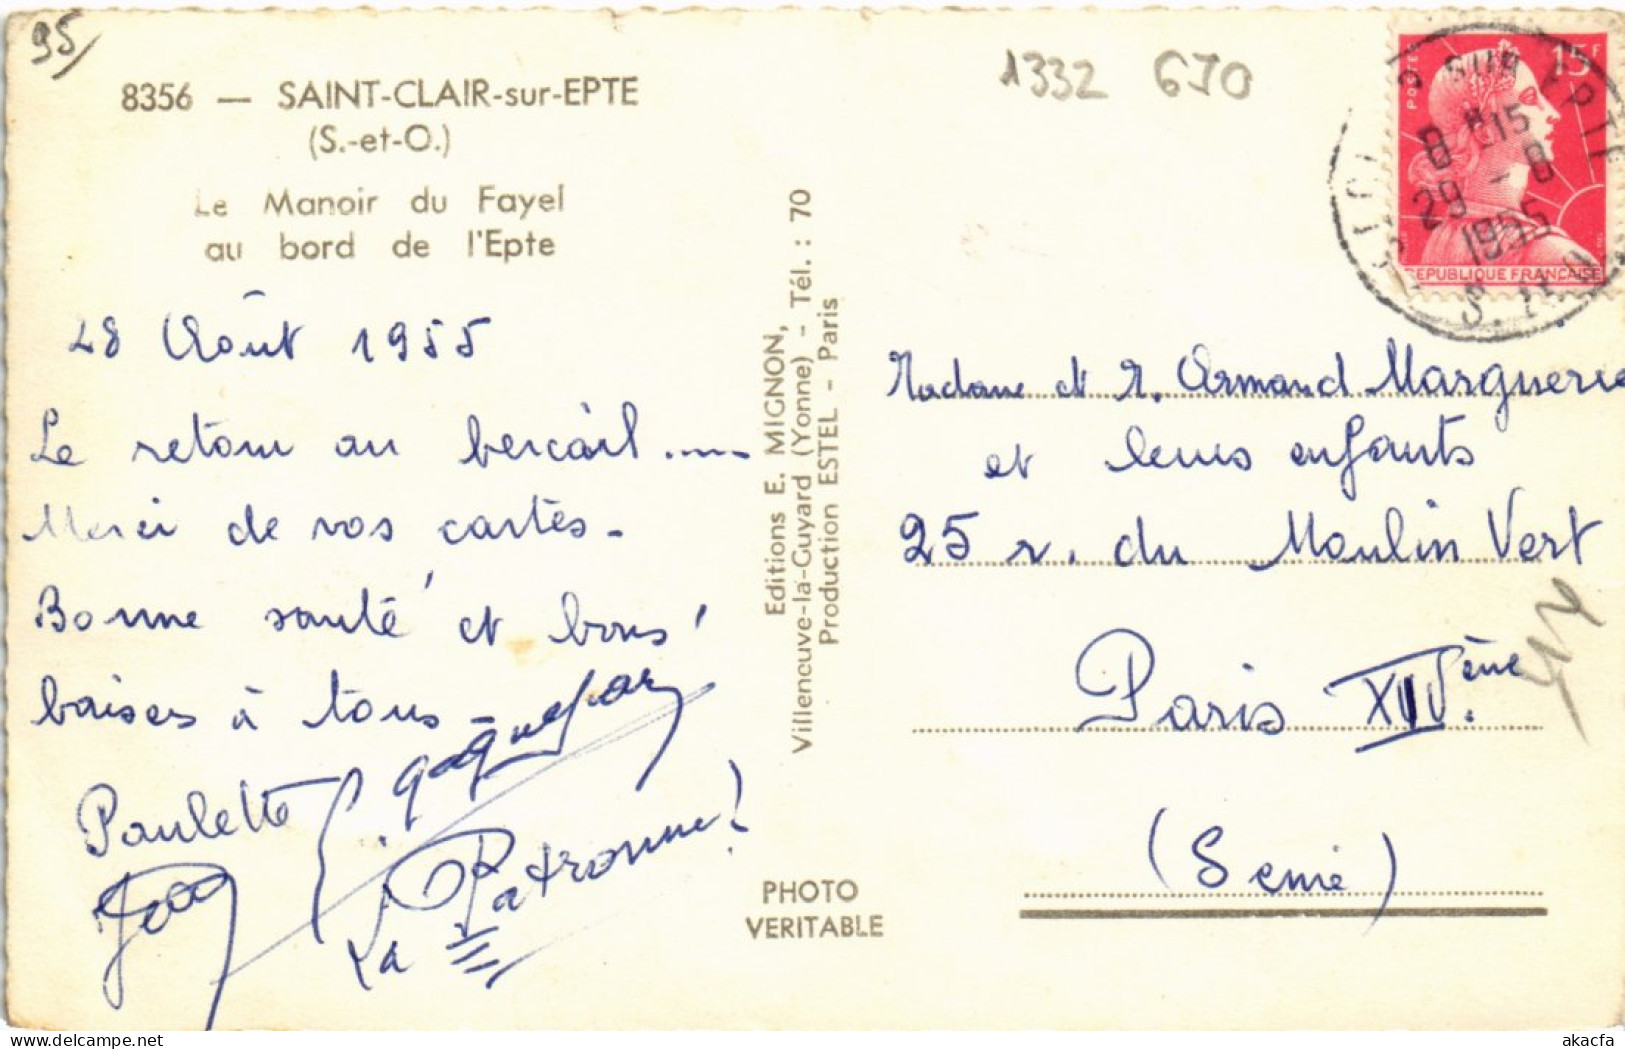 95
8356 — SAINT-CLAIR-sur-EPTE
(S.-et-O.)
Le Manoir du Fayel
au bord de l'Epte
28 Août 1955
Le retour au bercail.....
Merci de vos cartes-
Bonne santé et bons
baisers à tous-
Paulette
La Patronne!
Editions E. MIGNON,
Villeneuve-la-Guyard (Yonne) - Tél. : 70
Production ESTEL - Paris
PHOTO
VERITABLE
1332 670
POSTES
15F
REPUBLIQUE FRANÇAISE
SUR EPTE
8 H 15
29 - 8
1955
Madame et M. Armand Marguerie
et leurs enfants
25 r. du Moulin Vert
Paris XIVème.
(Seine)
akacfa
delcampe.net